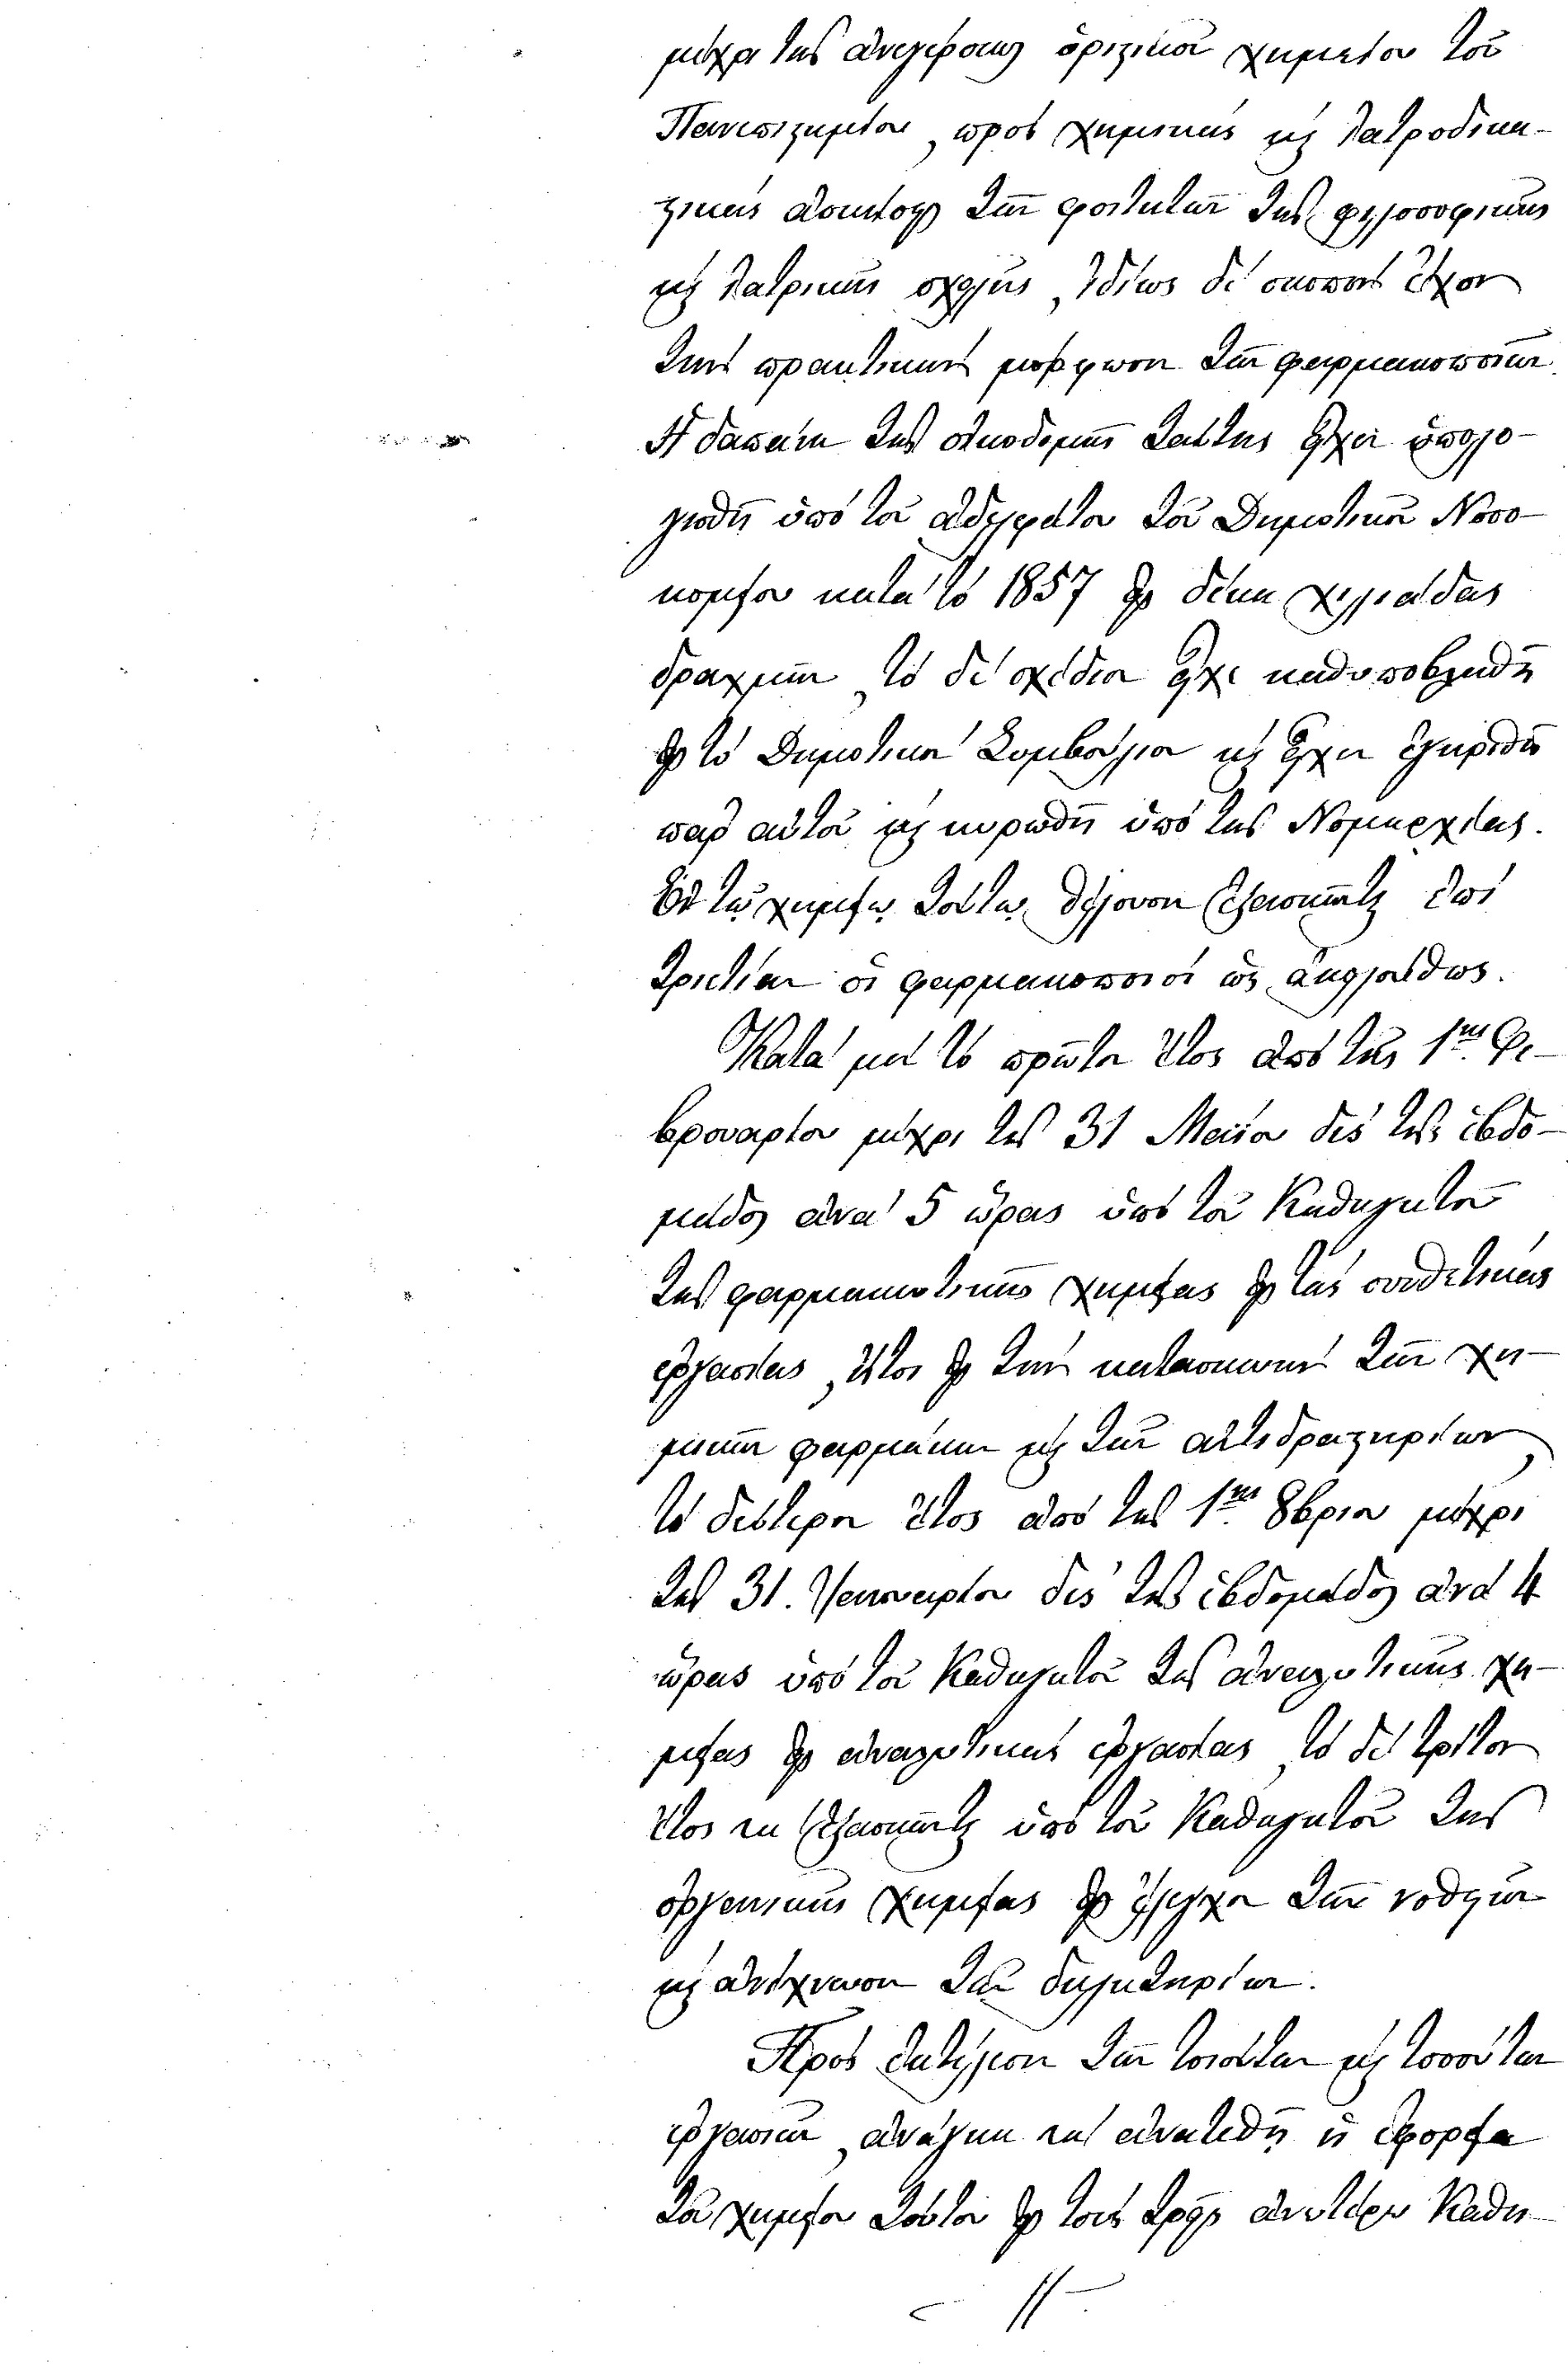 μέχρι τῆς ἀνεγέρσεως ὁριστικοῦ χημείου τοῦ
Πανεπιστημίου, πρὸς χημικὰς καὶ ἰατροδικα-
στικὰς ἀσκήσεις τῶν φοιτητῶν τῆς φιλοσοφικῆς
καὶ ἰατρικῆς σχολῆς, ἰδίως δὲ σκοπὸν ἔχον
τὴν πρακτικὴν μόρφωσιν τῶν φαρμακοποιῶν.
Ἡ δαπάνη τῆς οἰκοδομῆς ταύτης εἶχεν ὑπολο-
γισθῆ ὑπὸ τοῦ ἀδελφάτου τοῦ Δημοτικοῦ Νοσο-
κομείου κατὰ τὸ 1857 εἰς δέκα χιλιάδας
δραχμῶν, τὸ δὲ σχέδιον εἶχε καθυποβληθῆ
εἰς τὸ Δημοτικὸν Συμβούλιον καὶ εἶχεν ἐγκριθῆ
παρ' αὐτοῦ καὶ κυρωθῆ ὑπὸ τῆς Νομαρχίας.
Ἐν τῷ χημείῳ τούτῳ θέλουσιν ἐξασκεῖσθαι ἐπὶ
τριετίαν οἱ φαρμακοποιοὶ ὡς ἀκολούθως.
Κατὰ μὲν τὸ πρῶτον ἔτος ἀπὸ τῆς 1ης Φε-
βρουαρίου μέχρι τῆς 31 Μαΐου δὶς τῆς ἑβδο-
μάδος ἀνὰ 5 ὥρας ὑπὸ τοῦ Καθηγητοῦ
τῆς φαρμακευτικῆς χημείας εἰς τὰς συνθετικὰς
ἐργασίας, ἤτοι εἰς τὴν κατασκευὴν τῶν χη-
μικῶν φαρμάκων καὶ τῶν ἀντιδραστηρίων,
τὸ δεύτερον ἔτος ἀπὸ τῆς 1ης 8βρίου μέχρι
τῆς 31. Ἰανουαρίου δὶς τῆς ἑβδομάδος ἀνὰ 4
ὥρας ὑπὸ τοῦ Καθηγητοῦ τῆς ἀναλυτικῆς χη-
μείας εἰς ἀναλυτικὰς ἐργασίας, τὸ δὲ τρίτον
ἔτος νὰ ἐξασκῶνται ὑπὸ τοῦ Καθηγητοῦ τῆς
ὀργανικῆς χημείας εἰς ἔλεγχον τῶν νοθειῶν
καὶ ἀνίχνευσιν τῶν δηλητηρίων.
Πρὸς ἐκτέλεσιν τῶν τοιούτων καὶ τοσούτων
ἐργασιῶν, ἀνάγκη νὰ ἀνατεθῇ ἡ ἐφορεία
τοῦ χημείου τούτου εἰς τοὺς τρεῖς ἀνωτέρω Καθη-